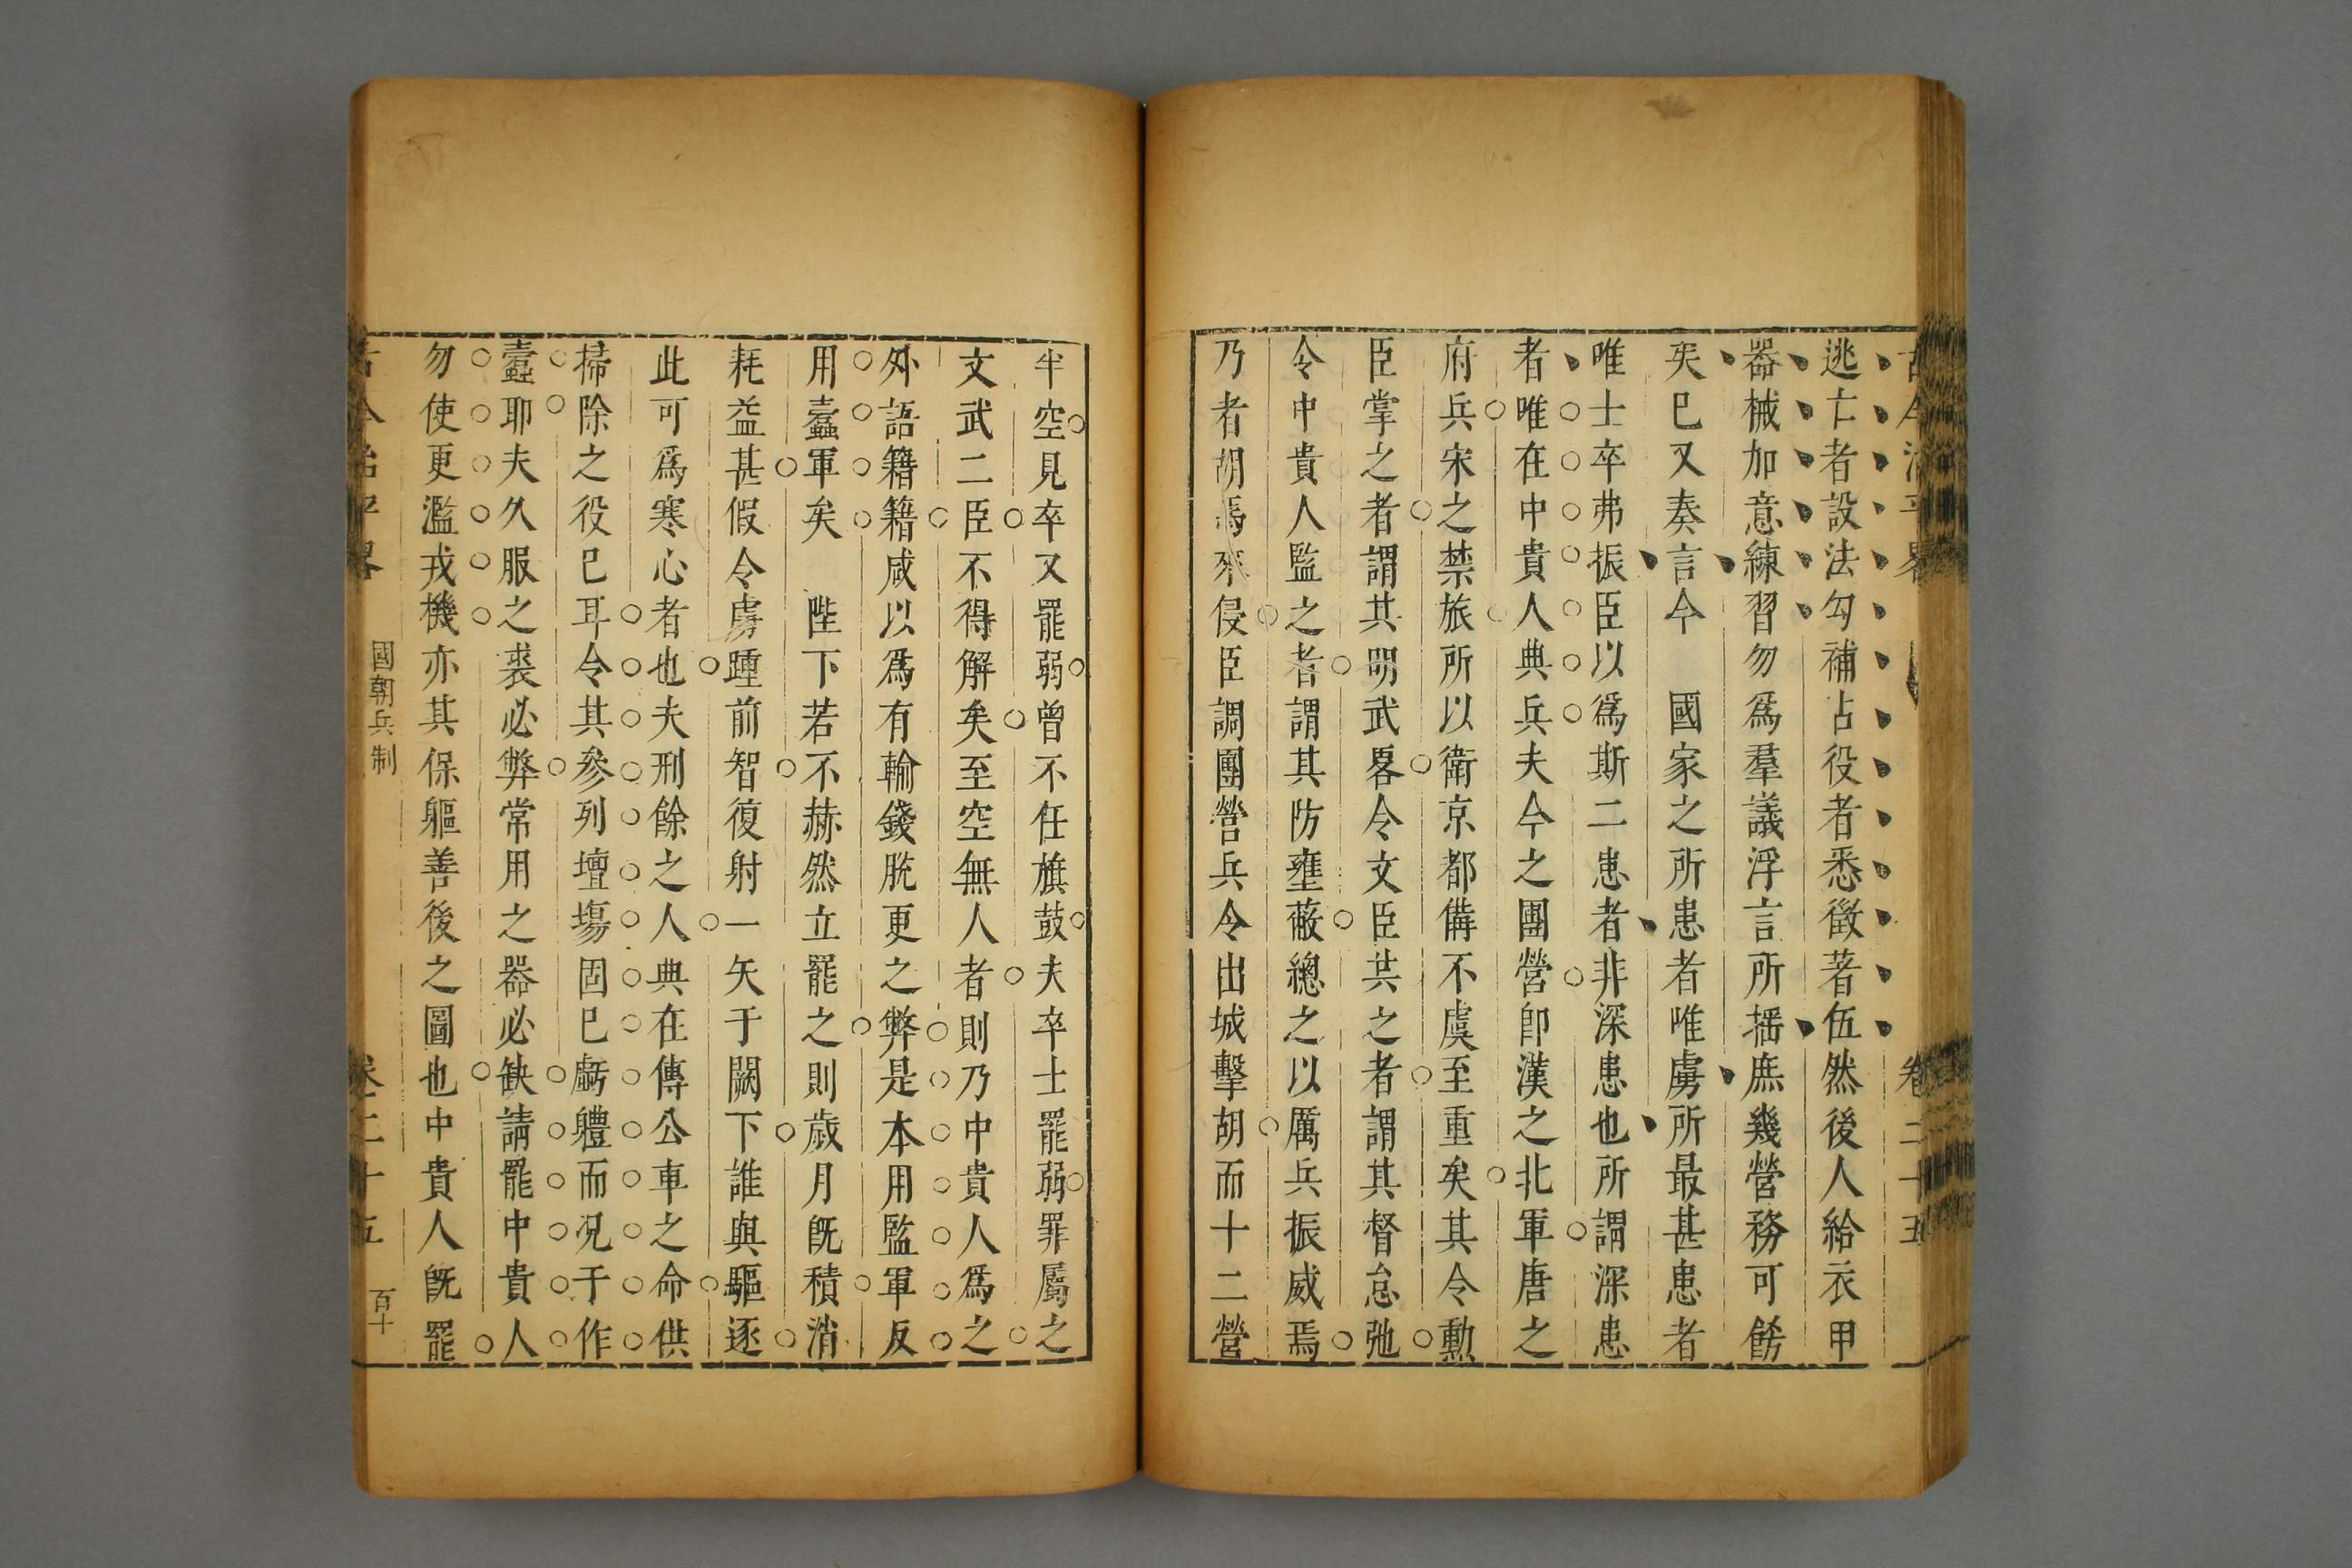 逃亡者設法勾補占役者悉徵著伍然後人給衣甲
器械加意練習勿爲羣議浮言所揺庶幾營務可飭
矣已又奏言今　國家之所患者唯虜所最甚患者
唯士卒弗振臣以爲斯二患者非深患也所謂深患
者唯在中貴人典兵夫今之團營卽漢之北軍唐之
府兵宋之禁旅所以衛京都備不虞至重矣其令勳
臣掌之者謂其明武畧令文臣共之者謂其督怠弛
令中貴人監之者謂其防壅蔽總之以厲兵振威焉
乃者胡馬來侵臣調團營兵令出城擊胡而十二營
半空見卒又罷弱曾不任旗鼓夫卒士罷弱罪屬之
文武二臣不得解矣至空無人者則乃中貴人爲之
外語籍籍咸以爲有輸錢脫更之弊是本用監軍反
用蠹軍矣　陛下若不赫然立罷之則歲月旣積消
耗益甚假令虜踵前智復射一矢于闕下誰與驅逐
此可爲寒心者也夫刑餘之人典在傳公車之命供
掃除之役已耳令其參列壇場固已虧體而況于作
蠹耶夫久服之裘必弊常用之器必缺請罷中貴人
勿使更濫戎機亦其保軀善後之圖也中貴人旣罷
國朝兵制
卷二十五
百十